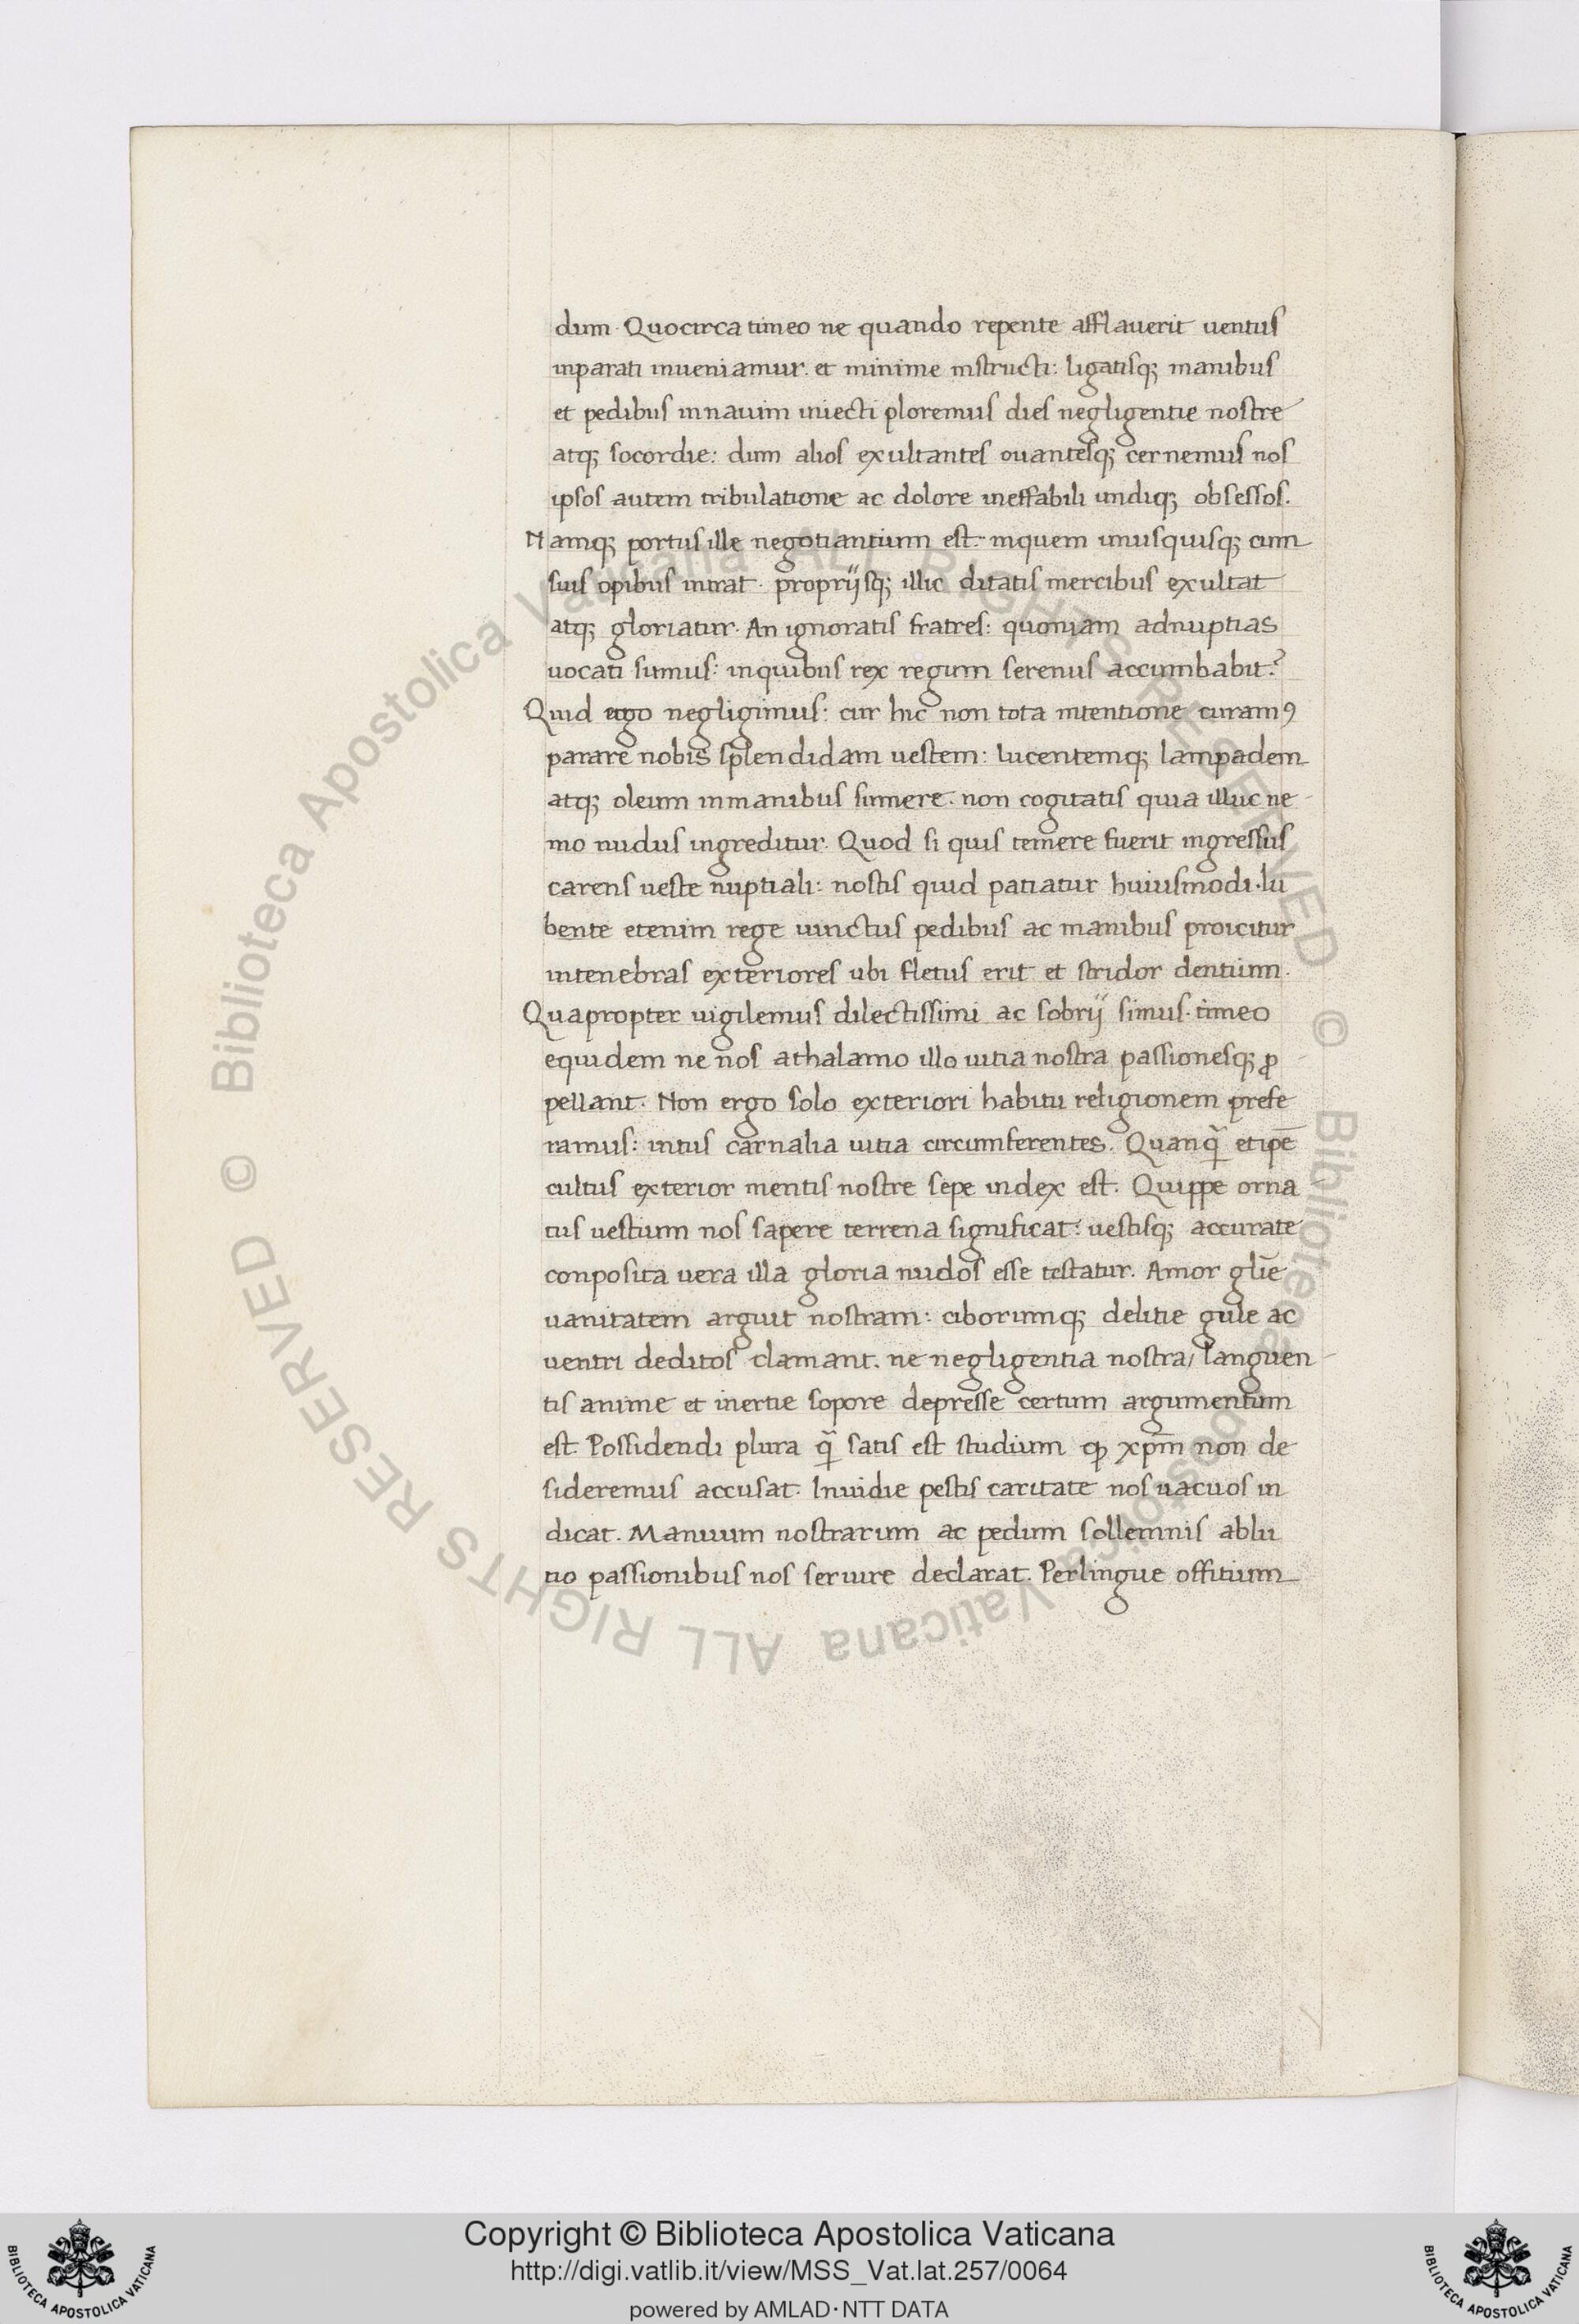 dum. Quocirca timeo ne quando repente afflauerit uentus
inparati inueniamur. et minime instructi: ligatisq; manibus
et pedibus in nauim iniecti ploremus dies negligentie nostre
atq; socordie: dum alios exultantes ouantesq; cernemus nos
ipsos autem tribulatione ac dolore ineffabili undiq; obsessos.
Namq; portus ille negotiantium est: inquem unusquisq; cum
suis opibus intrat. proprijsq; illic ditatis mercibus exultat
atq; gloriatur. An ignoratis fratres: quoniam adnuptias
uocati sumus: inquibus rex regum serenus accumbabit?
Quid ergo negligimus: cur hic non tota intentione curamꝯ
parare nobis splendidam uestem: lucentemq; lampadem
atq; oleum inmanibus sumere. non cogitatis quia illuc ne
mo nudus ingreditur. Quod si quis temere fuerit ingressus
carens ueste nuptiali: nostis quid patiatur huiusmodi. Iu
bente etenim rege uinctus pedibus ac manibus proicitur
intenebras exteriores ubi fletus erit et stridor dentium.
Quapropter uigilemus dilectissimi ac sobrij simus. timeo
equidem ne nos athalamo illo uitia nostra passionesq; ꝓ
pellant. Non ergo solo exteriori habitu religionem prefe
ramus: intus carnalia uitia circumferentes. Quanq̃ et ipē
cultus exterior mentis nostre sepe index est. Quippe orna
tus uestium nos sapere terrena significat: uestisq; accurate
conposita uera illa gloria nudos esse testatur. Amor gl̄ie
uanitatem arguit nostram: ciborumq; delitie gule ac
uentri deditos clamant. ne negligentia nostra/ languen-
tis anime et inertie sopore depresse certum argumentum
est. Possidendi plura q̃ satis est studium ꝙ xp̄m non de
sideremus accusat. Inuidie pestis caritate nos uacuos in
dicat. Manuum nostrarum ac pedum sollemnis ablu
tio passionibus nos seruire declarat. Perlingue offitium
© Biblioteca Apostolica Vaticana ALL RIGHTS RESERVED © Biblioteca Apostolica Vaticana ALL RIGHTS RESERVED
Copyright © Biblioteca Apostolica Vaticana
http://digi.vatlib.it/view/MSS_Vat.lat.257/0064
powered by AMLAD·NTT DATA
BIBLIOTECA APOSTOLICA VATICANA
BIBLIOTECA APOSTOLICA VATICANA